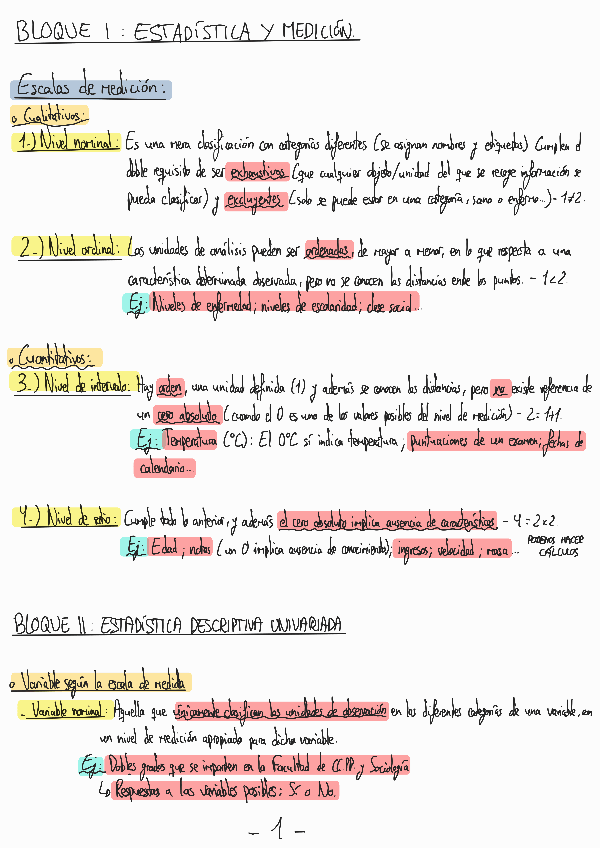 BLOQUE I : ESTADÍSTICA Y MEDICIÓN.
Escalas de medición:
o Cualitativos:
1.-) Nivel nominal: Es una mera clasificación con categorías diferentes (se asignan nombres y etiquetas) Cumplen el
doble requisito de ser exhaustivos (que cualquier objeto/unidad del que se recoge información se
pueda clasificar) y excluyentes (solo se puede estar en una categoría, sano o enfermo...) - 1≠2.
2.-) Nivel ordinal: Las unidades de análisis pueden ser ordenadas, de mayor a menor, en lo que respecta a una
característica determinada observada, pero no se conocen las distancias entre los puntos. - 1<2
Ej: Niveles de enfermedad; niveles de escolaridad; clase social...
o Cuantitativos:
3.-) Nivel de intervalo: Hay orden, una unidad definida (1) y además se conocen las distancias, pero no existe referencia de
un cero absoluto (cuando el 0 es uno de los valores posibles del nivel de medición) - 2=1+1.
Ej: Temperatura (°C): El 0°C sí indica temperatura; puntuaciones de un examen; fechas de
calendario...
4.-) Nivel de ratio: Cumple todo lo anterior, y además el cero absoluto implica ausencia de características - 4=2x2
Ej: Edad; notas (un 0 implica ausencia de conocimiento); ingresos; velocidad; masa... PODEMOS HACER
CÁLCULOS
BLOQUE II : ESTADÍSTICA DESCRIPTIVA UNIVARIADA
o Variable según la escala de medida
- Variable nominal: Aquella que únicamente clasifican las unidades de observación en las diferentes categorías de una variable, en
un nivel de medición apropiado para dicha variable.
Ej: Dobles grados que se imparten en la Facultad de CCPP y Sociología
↳ Respuestas a las variables posibles: Sí o No.
- 1 -